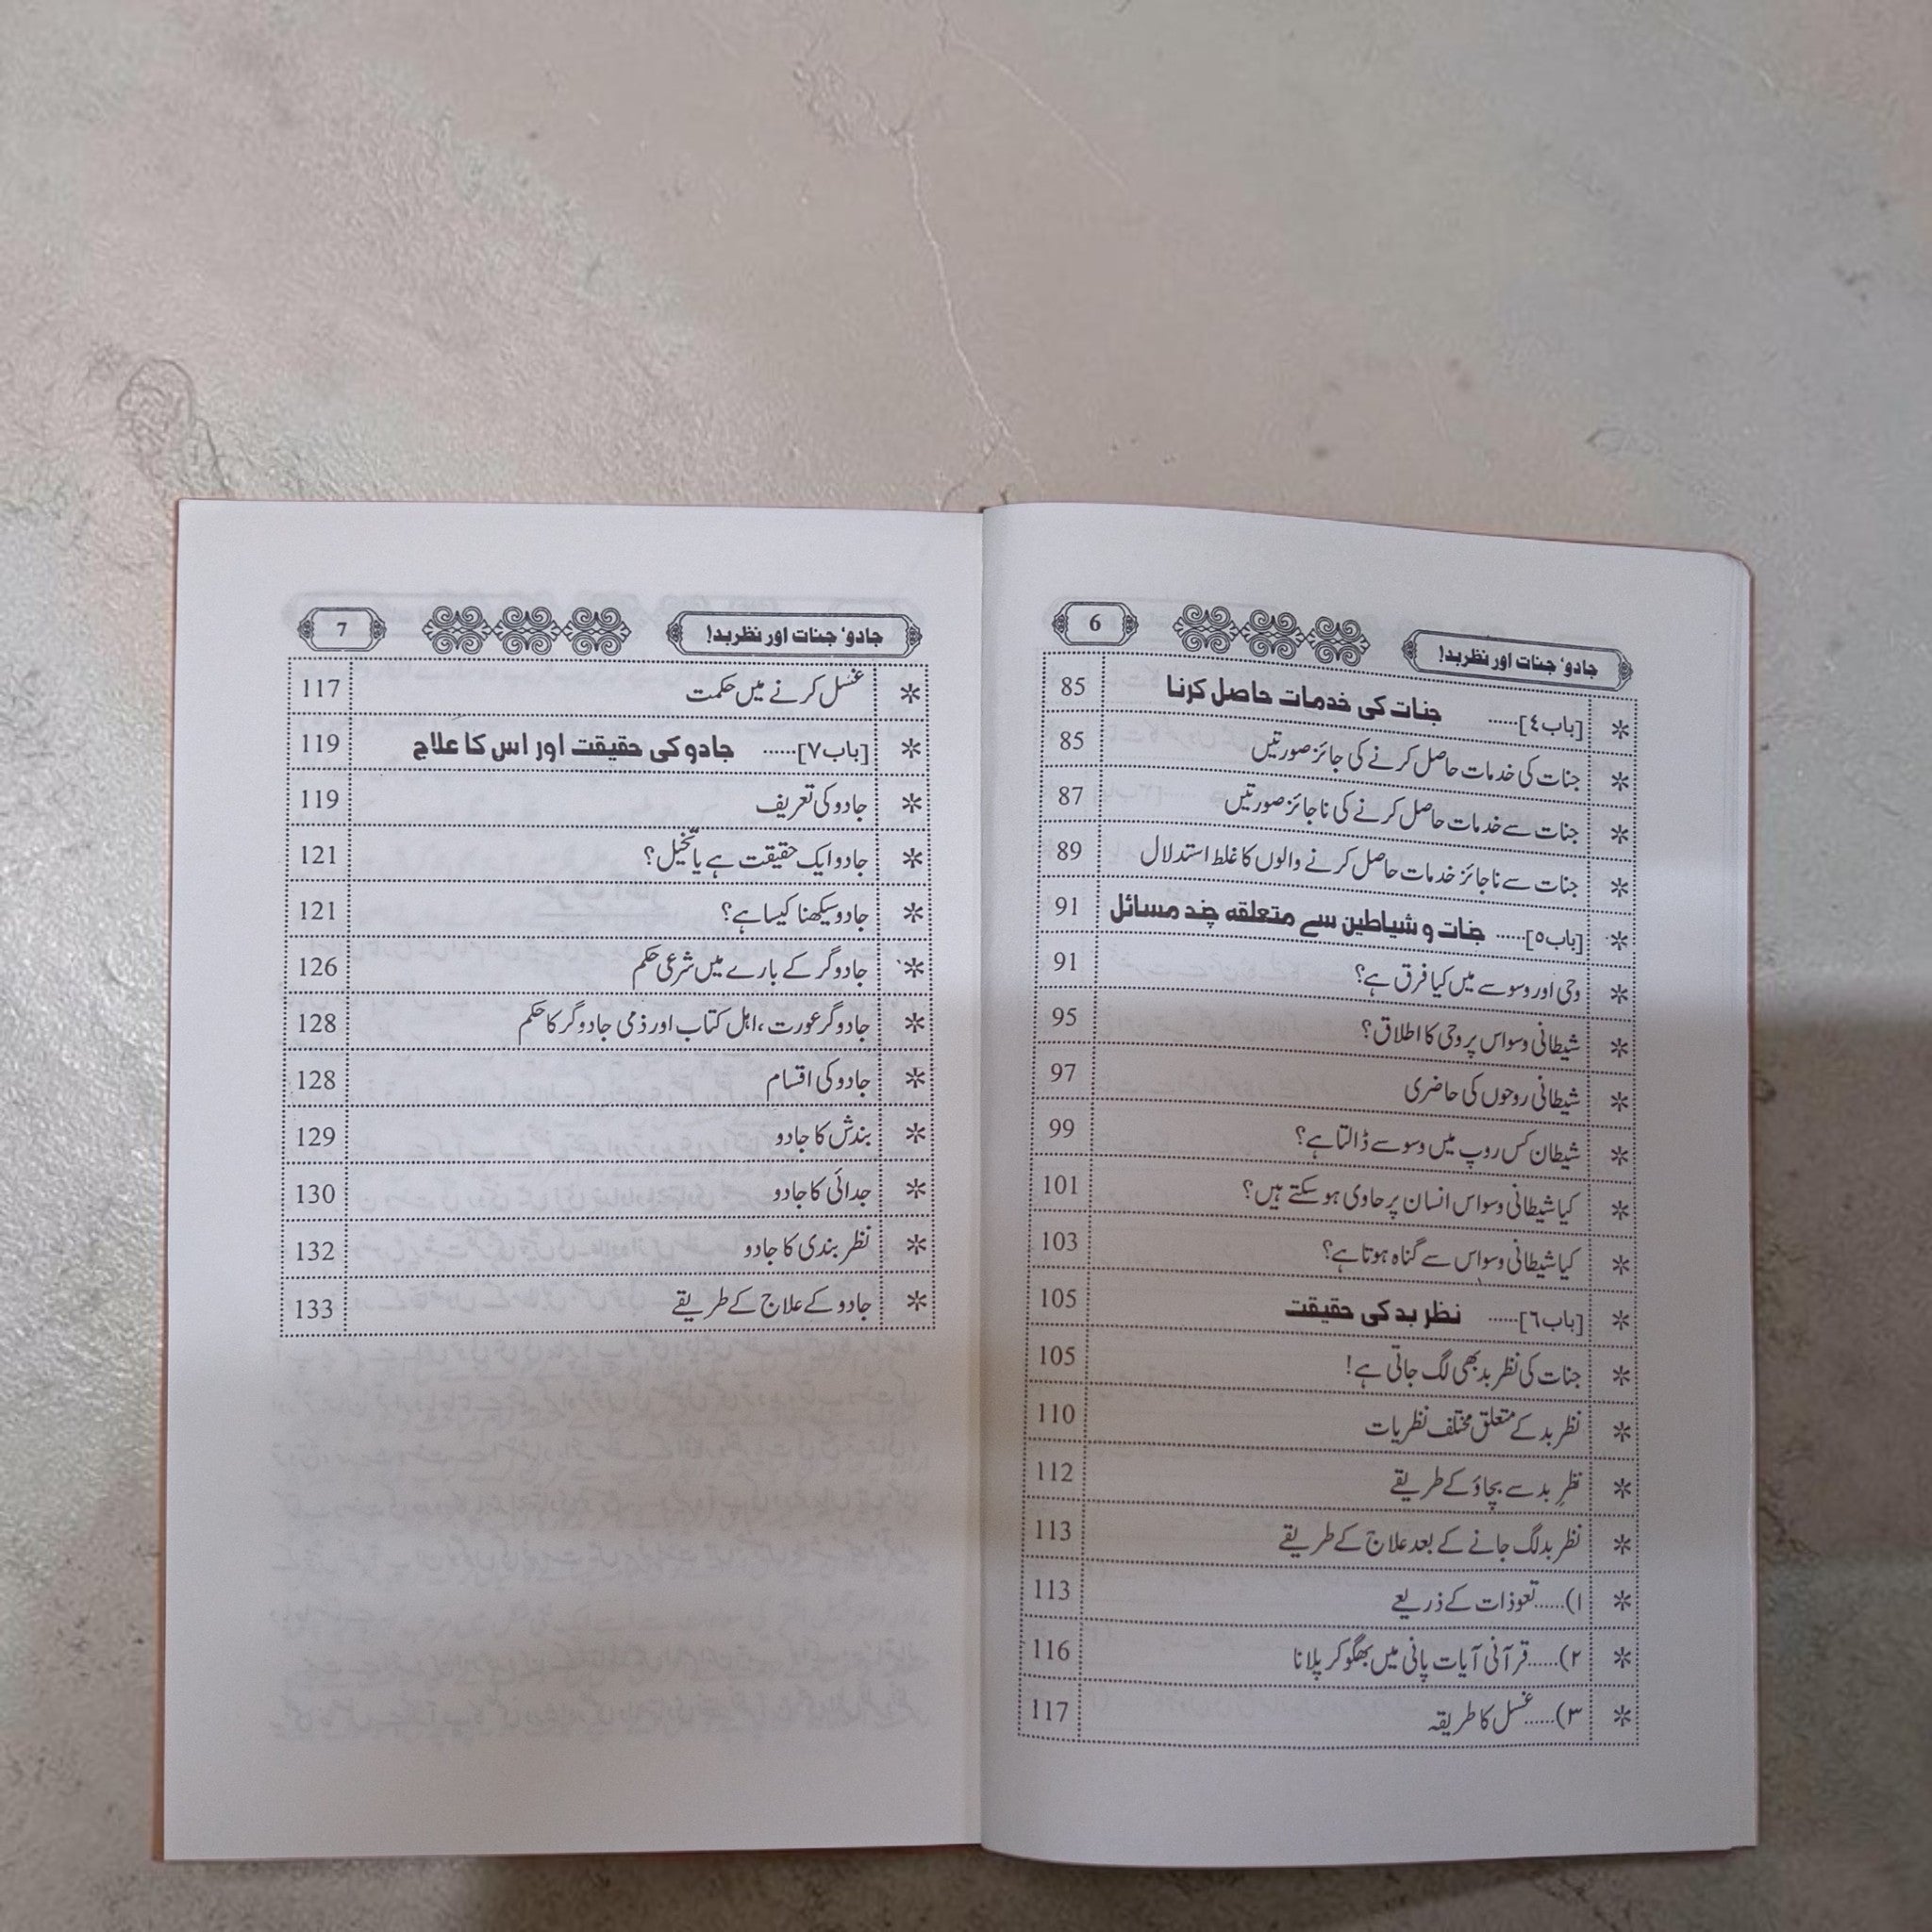 جادو' جنات اور نظربد! 6
* [باب٤]...... جنات کی خدمات حاصل کرنا 85
* جنات کی خدمات حاصل کرنے کی جائز صورتیں 85
* جنات سے خدمات حاصل کرنے کی ناجائز صورتیں 87
* جنات سے ناجائز خدمات حاصل کرنے والوں کا غلط استدلال 89
* [باب٥]...... جنات و شیاطین سے متعلقه چند مسائل 91
* وحی اور وسوسے میں کیا فرق ہے؟ 91
* شیطانی وسواس پر وحی کا اطلاق؟ 95
* شیطانی روحوں کی حاضری 97
* شیطان کس روپ میں وسوسے ڈالتا ہے؟ 99
* کیا شیطانی وسواس انسان پر حاوی ہوسکتے ہیں؟ 101
* کیا شیطانی وسواس سے گناہ ہوتا ہے؟ 103
* [باب٦]...... نظر بد کی حقیقت 105
* جنات کی نظر بد بھی لگ جاتی ہے! 105
* نظر بد کے متعلق مختلف نظریات 110
* نظرِ بد سے بچاؤ کے طریقے 112
* نظر بد لگ جانے کے بعد علاج کے طریقے 113
* ۱)......تعوذات کے ذریعے 113
* ۲)......قرآنی آیات پانی میں بھگو کر پلانا 116
* ۳)......غسل کا طریقہ 117
جادو' جنات اور نظربد! 7
* غسل کرنے میں حکمت 117
* [باب٧]...... جادو کی حقیقت اور اس کا علاج 119
* جادو کی تعریف 119
* جادو ایک حقیقت ہے یا تخیل؟ 121
* جادو سیکھنا کیسا ہے؟ 121
* جادوگر کے بارے میں شرعی حکم 126
* جادوگر عورت، اہل کتاب اور ذمی جادوگر کا حکم 128
* جادو کی اقسام 128
* بندش کا جادو 129
* جدائی کا جادو 130
* نظر بندی کا جادو 132
* جادو کے علاج کے طریقے 133